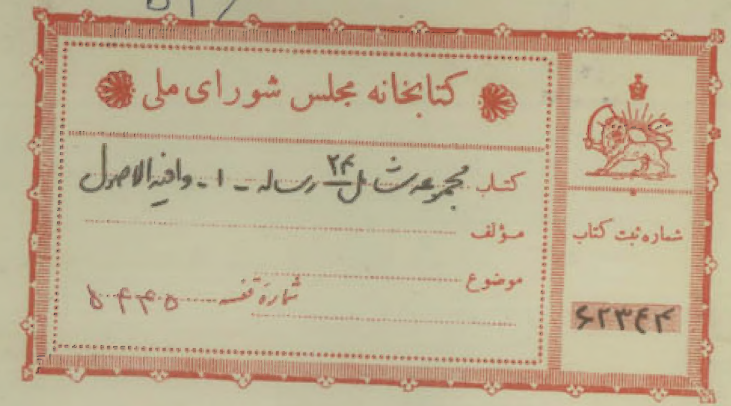 کتابخانه مجلس شورای ملی
کتاب مجموعه شامل ۲۴ رساله - ۱ - وافیة الاصول
مؤلف
موضوع
شماره قفسه ۵۴۴۵
شماره ثبت کتاب
۶۲۳۴۴